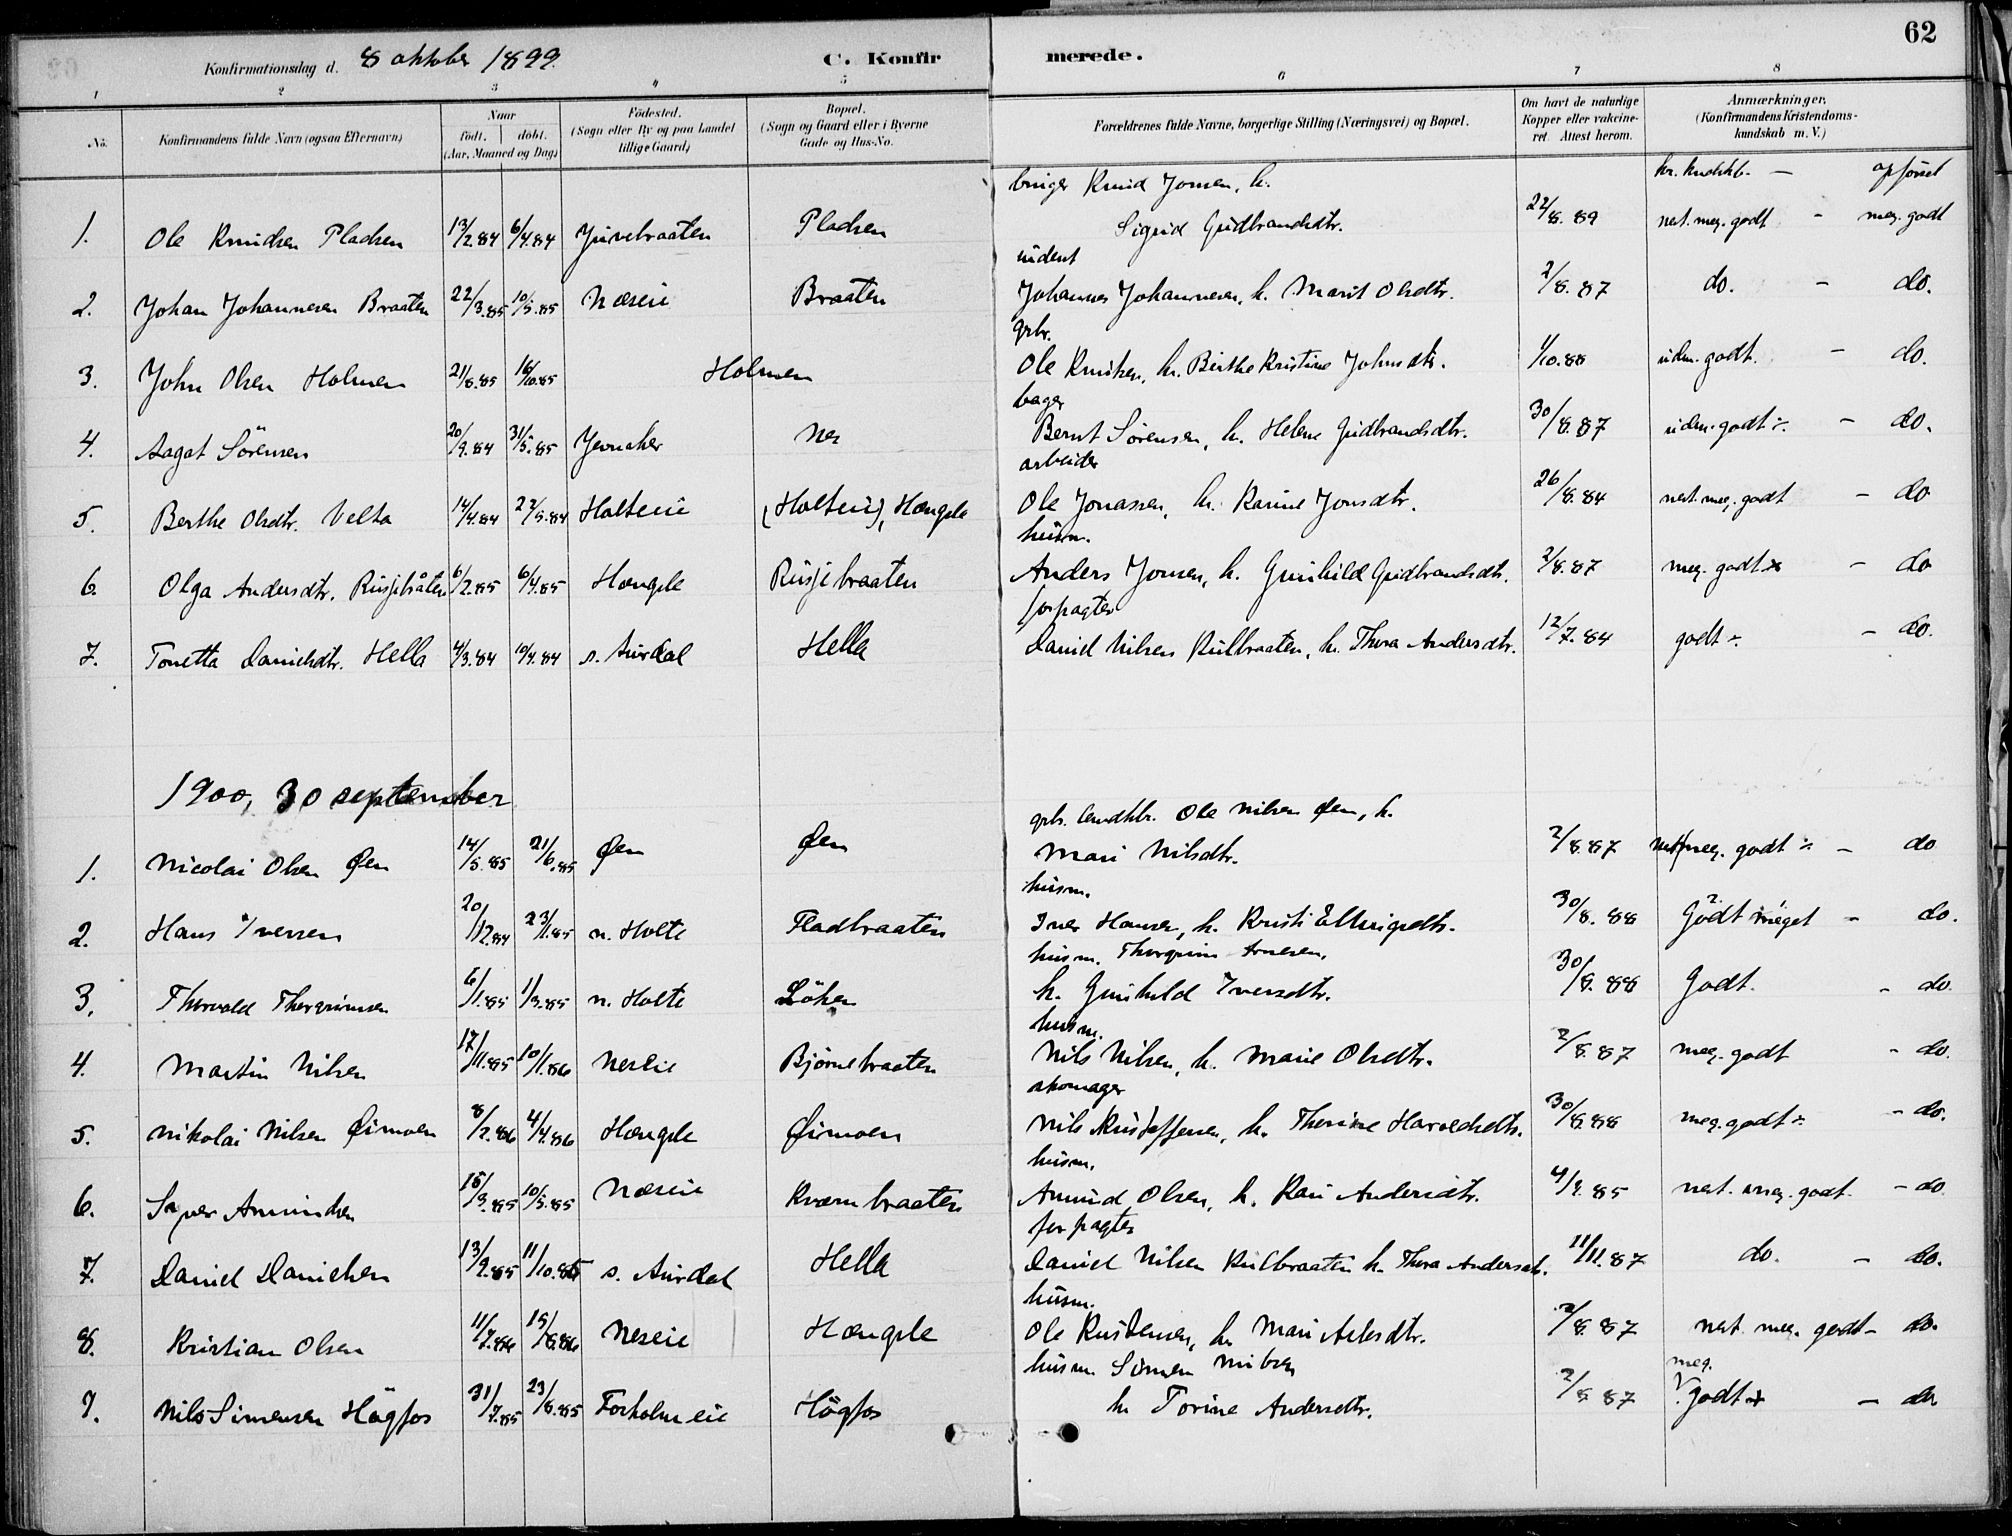 62
Konfirmationsdag d. 8 oktober 1899. C. Konfir merede.
1 2 3 4 5 6 7 8
No. Konfirmandens fulde Navn (ogsaa Efternavn) Naar født. døbt. (Aar, Maaned og Dag) Födested. (Sogn eller By og paa Landet tillige Gaard) Bopæl. (Sogn og Gaard eller i Byerne Gade og Hus-No. Forældrenes fulde Navne, borgerlige Stilling (Næringsvei) og Bopæl. Om havt de naturlige Kopper eller vakcineret. Attest herom. Anmærkninger. (Konfirmandens Kristendomskundskab m. V.)
bruger Knud Jonsen, h. kr. kndskb. — opførsel
1. Ole Knudsen Pladsen 13/2.84 6/4.84 Juvebraaten Pladsen Sigrid Gudbrandsdtr. 22/8.89 nat. meg. godt - meg. godt
indent
2. Johan Johannesen Braaten 22/3.85 10/5.85 Næseie Braaten Johannes Johannesen, h. Marit Olsdtr. 2/8.87 do. - do.
grbr.
3. John Olsen Holmen 21/8.85 16/10.85 Holmen Ole Knutsen, h. Birthe Kristine Johnsdtr. 1/10.88 udm. godt. - do.
bager
4. Aagot Sörensen 20/9.84 31/5.85 Jevnaker Nes Bernt Sørensen, h. Helene Gudbrandsdtr. 30/8.87 udm. godt ÷ - do.
arbeider
5. Berthe Olsdtr. Velta 14/4.84 22/5.84 Holteeie (Holteeie), Hængsle Ole Jonassen, h. Karine Jonsdtr. 26/8.84 nat. meg. godt - do
husm.
6. Olga Andersdtr. Rusjebråten 6/2.85 6/4.85 Hængsle Rusjebraaten Anders Jonsen, h. Gunhild Gudbrandsdtr. 2/8.87 meg. godt - do
forpagter
7. Tonetta Danielsdtr. Hella 4/3.84 10/4.84 s. Aurdal Hella Daniel Nilsen Kulbraaten, h. Thora Andersdtr. 12/7.84 godt ÷ - do.
1900, 30 september
grb. landhb. Ole Nilsen Øen, h.
1. Nicolai Olsen Øen 14/5.85 21/6.85 Øen Øen Mari Nilsdtr. 2/8.87 nat meg. godt ÷ - do
husm.
2. Hans Iversen 20/12.84 23/1.85 n. Holte Fladbraaten Iver Hansen, h. Kristi Ellingsdtr. 30/8.88 Godt meget - do.
husm. Thorgrim Arnesen,
3. Thorvald Thorgrimsen 6/1.85 1/3.85 n. Holte Löken h. Gunhild Iversdtr. 30/8.88 Godt. - do.
husm.
4. Martin Nilsen 17/11.85 10/1.86 Neseie Bjørnebraaten Nils Nilsen, h. Marie Olsdtr. 2/8.87 meg. godt - do.
skomager
5. Nikolai Nilsen Øimoen 8/2.86 4/4.86 Hængsle Øimoen Nils Kristoffersen, h. Therine Haroldsdtr. 30/8.88 meg. godt ÷ - do.
husm.
6. Syver Amundsen 15/3.85 10/5.85 Næseie Kværnbraaten Amund Olsen, h. Kari Andersdtr. 4/9.85 nat. meg. godt. - do
forpagter
7. Daniel Danielsen 13/9.85 11/10.85 s. Aurdal Hella Daniel Nilsen Kulbraaten h. Thora Andersdtr. 11/11.87 do. - do.
husm.
8. Kristian Olsen 11/7.86 15/8.86 Neseie Hængsle Ole Kristensen, h. Mari Aslesdtr. 2/8.87 nat. meg. godt - do.
husm. Simen Nilsen meg.
9. Nils Simensen Högfos 31/7.85 23/8.85 Forholmeie Högfos h. Torine Andersdtr. 2/8 87 godt - do